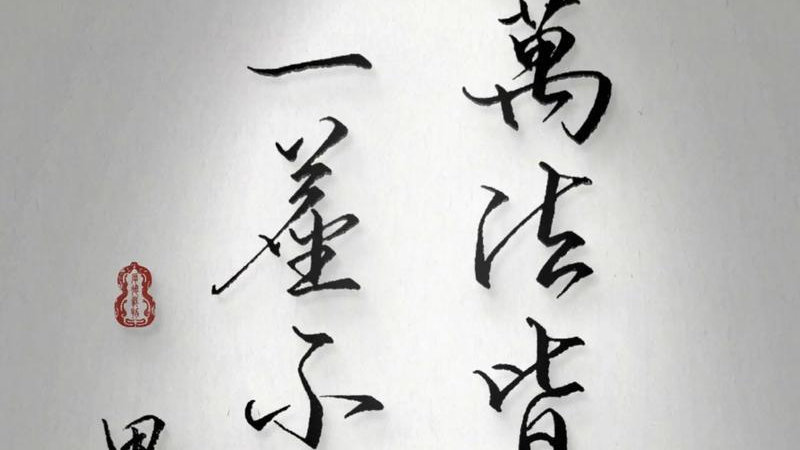 萬法皆
一塵不